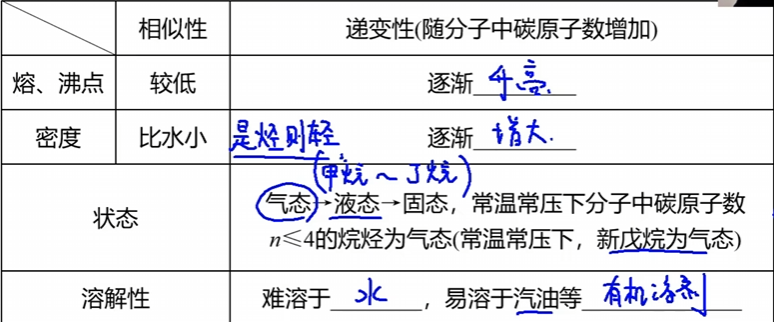 相似性 递变性(随分子中碳原子数增加)
熔、沸点 较低 逐渐 升高.
密度 比水小 是烃则轻 逐渐 增大.
(甲烷～丁烷)
气态→液态→固态，常温常压下分子中碳原子数
状态
n≤4的烷烃为气态(常温常压下，新戊烷为气态)
溶解性 难溶于 水 ，易溶于汽油等 有机溶剂